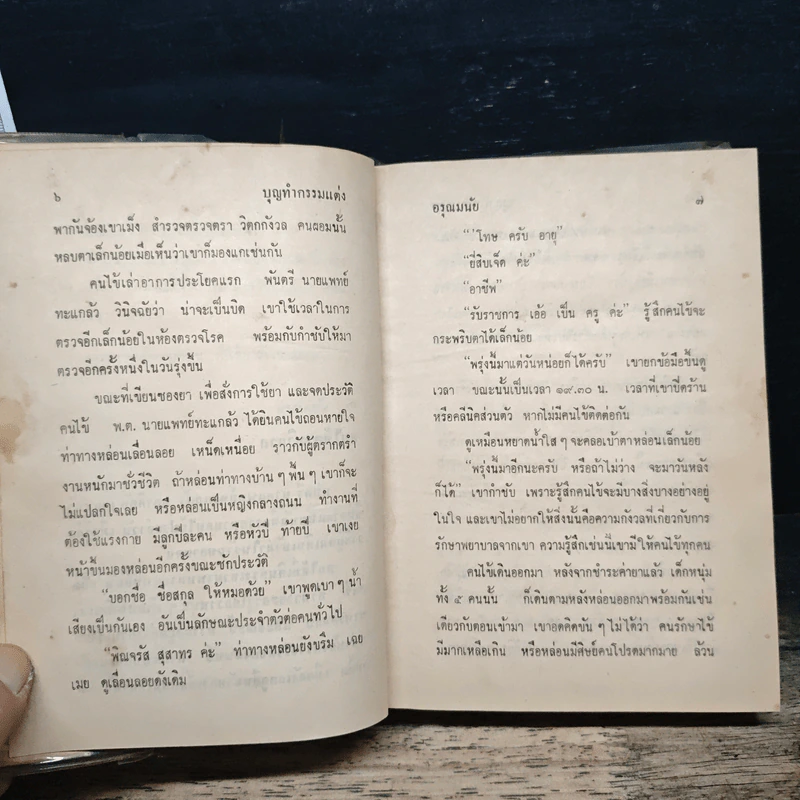 ๖ บุญทำกรรมแต่ง
พากันจ้องเขาเม็ง สำรวจตรวจตรา วิตกกังวล คนผอมนั้น
หลบตาเล็กน้อยเมื่อเห็นว่าเขาก็มองแกเช่นกัน
คนไข้เล่าอาการประโยคแรก พันตรี นายแพทย์
ทะแกล้ว วินิจฉัยว่า น่าจะเป็นบิด เขาใช้เวลาในการ
ตรวจอีกเล็กน้อยในห้องตรวจโรค พร้อมกับกำชับให้มา
ตรวจอีกครั้งหนึ่งในวันรุ่งขึ้น
ขณะที่เขียนซองยา เพื่อสั่งการใช้ยา และจดประวัติ
คนไข้ พ.ต. นายแพทย์ทะแกล้ว ได้ยินคนไข้ถอนหายใจ
ท่าทางหล่อนเลื่อนลอย เหน็ดเหนื่อย ราวกับผู้ตรากตรำ
งานหนักมาชั่วชีวิต ถ้าหล่อนท่าทางบ้าน ๆ พื้น ๆ เขาก็จะ
ไม่แปลกใจเลย หรือหล่อนเป็นหญิงกลางถนน ทำงานที่
ต้องใช้แรงกาย มีลูกปีละคน หรือหัวปี ท้ายปี เขาเงย
หน้าขึ้นมองหล่อนอีกครั้งขณะซักประวัติ
“บอกชื่อ ชื่อสกุล ให้หมอด้วย” เขาพูดเบา ๆ น้ำ
เสียงเป็นกันเอง อันเป็นลักษณะประจำตัวต่อคนทั่วไป
“พิณจรัส สุสาทร ค่ะ” ท่าทางหล่อนยังขรึม เฉย
เมย ดูเลื่อนลอยดังเดิม
อรุณมนัย ๗
“ 'โทษ ครับ อายุ”
“ยี่สิบเจ็ด ค่ะ”
“อาชีพ”
“รับราชการ เอ้อ เป็น ครู ค่ะ” รู้สึกคนไข้จะ
กระพริบตาได้เล็กน้อย
“พรุ่งนี้มาแต่วันหน่อยก็ได้ครับ” เขายกข้อมือขึ้นดู
เวลา ขณะนั้นเป็นเวลา ๑๙.๓๐ น. เวลาที่เขาปิดร้าน
หรือคลีนิคส่วนตัว หากไม่มีคนไข้ติดต่อกัน
ดูเหมือนหยาดน้ำใส ๆ จะคลอเบ้าตาหล่อนเล็กน้อย
“พรุ่งนี้มาอีกนะครับ หรือถ้าไม่ว่าง จะมาวันหลัง
ก็ได้” เขากำชับ เพราะรู้สึกคนไข้จะมีบางสิ่งบางอย่างอยู่
ในใจ และเขาไม่อยากให้สิ่งนั้นคือความกังวลที่เกี่ยวกับการ
รักษาพยาบาลจากเขา ความรู้สึกเช่นนี้เขามีให้คนไข้ทุกคน
คนไข้เดินออกมา หลังจากชำระค่ายาแล้ว เด็กหนุ่ม
ทั้ง ๕ คนนั้น ก็เดินตามหลังหล่อนออกมาพร้อมกันเช่น
เดียวกับตอนเข้ามา เขาอดคิดขัน ๆ ไม่ได้ว่า คนรักษาไข้
มีมากเหลือเกิน หรือหล่อนมีศิษย์คนโปรดมากมาย ล้วน